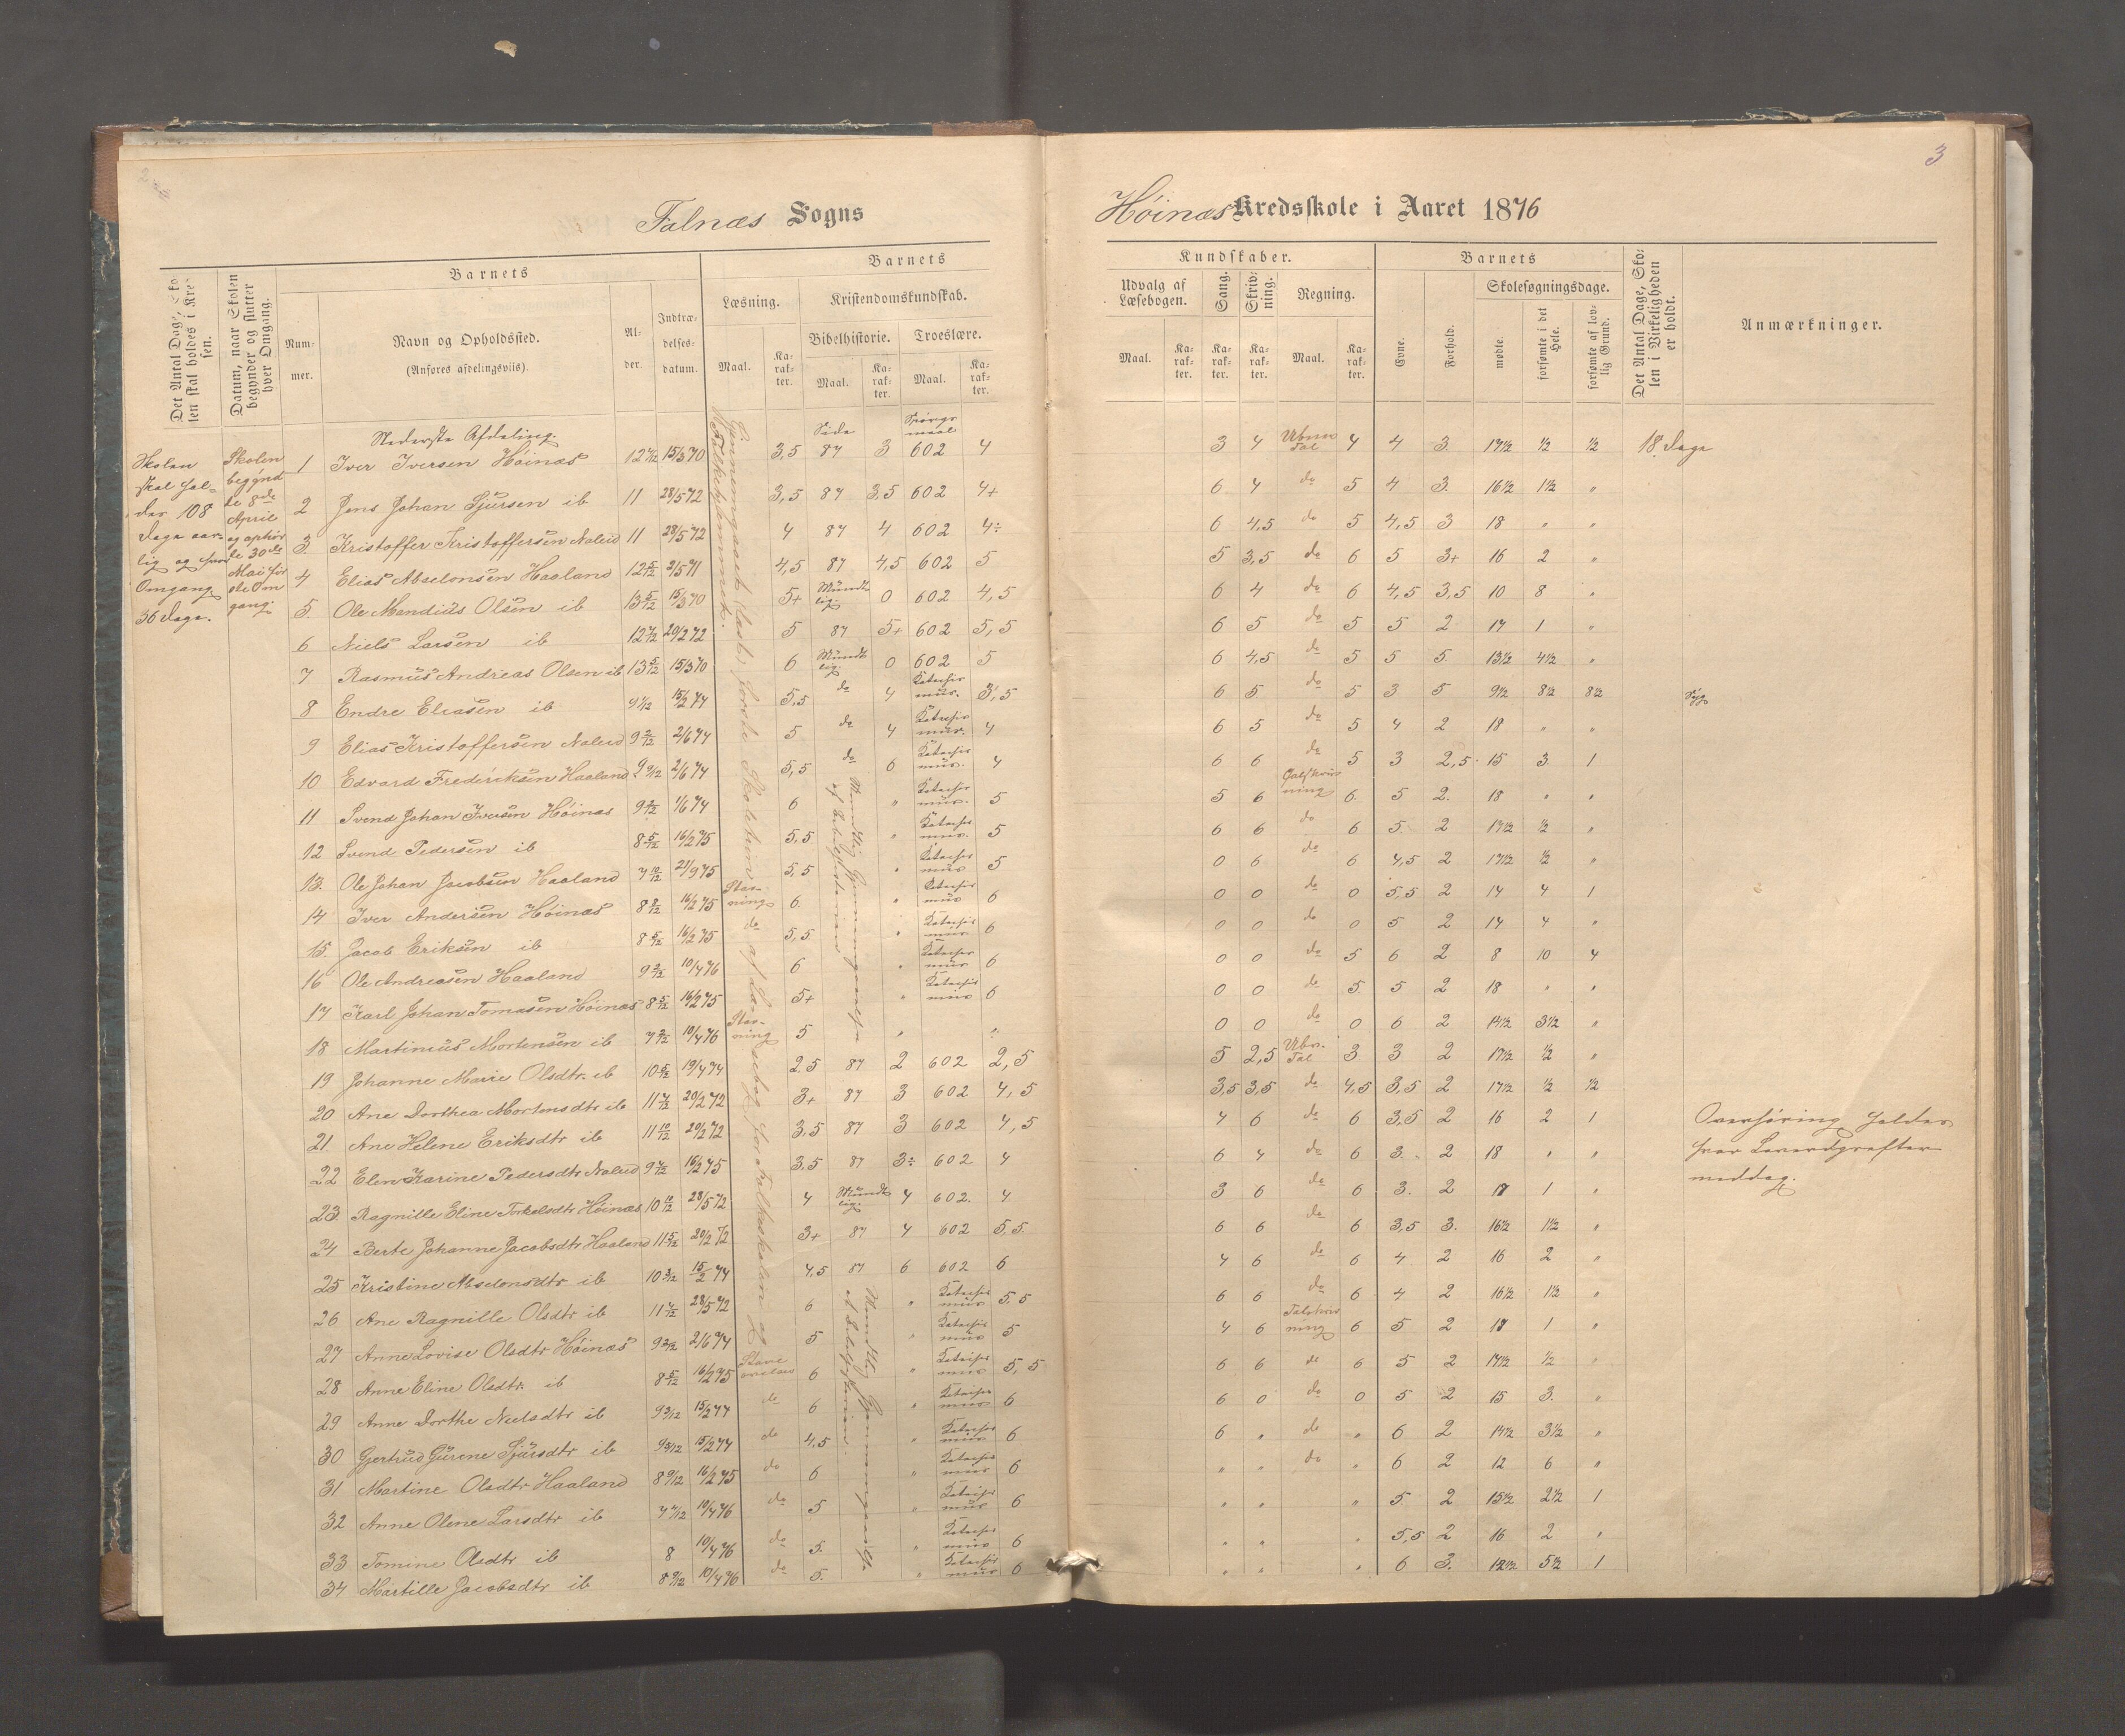 3
Falnæs Sogns
Høinæs Kredsskole i Aaret 1876
Det Antal Dage, Skolen skal holdes i Kredsen.
Datum, naar Skolen begynder og slutter hver Omgang.
Barnets
Nummer.
Navn og Opholdssted.
(Anføres afdelingsviis).
Alder.
Indtrædelsesdatum.
Barnets
Læsning.
Maal.
Karakter.
Kristendomskundskab.
Bibelhistorie.
Maal.
Karakter.
Troeslære.
Maal.
Karakter.
Kundskaber.
Udvalg af Læsebogen.
Maal.
Karakter.
Sang.
Karakter.
Skrivning.
Karakter.
Regning.
Maal.
Karakter.
Barnets
Evne.
Forhold.
Skolesøgningsdage.
mødte.
forsømte i det Hele.
forsømte af lovlig Grund.
Det Antal Dage, Skolen i Virkeligheden er holdt.
Anmærkninger.
Skolen skal holdes 108 Dage aarlig og hver Omgang 36 Dage.
Skolen begyndte 8de April og ophørte 30de Mai første Omgang.
Nederste Afdeling.
Side
Spørgsmaal
1 Iver Iversen Höinæs 12 15/3 70 3,5 87 3 602 4 3 4 4 4 3. 17½ ½ ½ 18 Dage
2 Jens Johan Sjursen ib 11 28/5 72 3,5 87 3,5 602 4+ 6 4 do 5 4 3. 16½ 1½ "
3 Kristoffer Kristoffersen Nalud 11 28/5 72 4 87 4 602 4÷ 6 4,5 do 5 4,5 3 18 " "
4 Elias Abselonsen Haaland 12 5/12 2/5 71 4,5 87 4,5 602 5 5 3,5 do 6 5 3+ 16 2 "
5. Ole Mandius Olsen ib 13 5/12 15/3 70 5+ Mundtlig. 0 602 4,5 6 4 do 6 4,5 3,5 10 8 "
6 Niels Larsen ib 12 20/2 72 5 87 5+ 602 5,5 6 5 do 5 5 2 17 1 "
7 Rasmus Andreas Olsen ib 13 5/12 15/3 70 6 Mundtlig. 0 602 5 6 4,5 do 5 5 5 13½ 4½ "
8 Endre Eliasen ib 15/2 74 5,5 do 4 Katechismus. 3,5 6 5 do 5 3 5 9½ 8½ 8½ Syg
9 Elias Kristoffersen Nalud 2/6 74 5 do 4 Katechismus. 4 6 5 do 5 4 2 18 " "
10 Edvard Frederiksen Haaland 2/6 74 5,5 do 6 Katechismus. 4 6 6 do 5 3 2,5 15 3 1
11 Svend Johan Iversen Höinæs 1/6 74 6 " Katechismus. 5 5 6 Talskrivning 6. 5 2. 18 " "
12 Svend Pedersen ib 8 5/12 16/2 75 5,5 " Katechismus. 5 6 6 do 6 5. 2 17½ ½ "
13. Ole Johan Jacobsen Haaland 7 10/12 21/9 75 5,5 " Katechismus 5 0 6 do 6 4,5 2 17½ ½ "
14 Iver Andersen Höinæs 16/2 75 Stavning 6. " Katechismus 6 0 0 do 0 5,5 2 14 4 1
15. Jacob Eriksen ib 8 5/12 16/2 75 do 5,5 " Katechismus 6 0 0 do 0 5 2 14 4 "
16 Ole Andreasen Haaland 10/4 76 6 " Katechismus 6 0 0 do 5 6 2 8 10 4
17 Karl Johan Tomasen Höinæs 8 5/12 16/2 75 5+ " Katechismus 6 0 0 do 5. 5 2 18 " "
18 Martinius Mortensen ib 10/4 76 Stavning 5 " " 0 0 do 0 6 2 14½ 3½ "
19 Johanne Marie Olsdtr. ib 10 5/12 19/4 74 2,5 87 2 602 2,5 5 2,5 3 3 2 17½ ½ "
20 Ane Dorthea Mortensdtr ib 20/2 72 3+ 87 3 602 4,5 3,5 3,5 do 4,5 3,5 2 17½ ½ ½
21 Ane Helene Eriksdtr ib 11 10/12 20/2 72 3,5 87 3 602 4,5 4 6 do 6 3,5 2 16 2 1
22 Elen Karine Pedersdtr Nalud 16/2 75 3,5 87 3÷ 602 4 6 4 do 6 3. 2 18 " "
23 Ragnille Eline Torkelsdtr Höinæs 10 10/12 28/5 72 4 Mundtlig. 4 602. 4 3 6 do 6 3. 2 17 1 "
24 Berte Johanne Jacobsdtr Haaland 11 5/12 20/2 72 3+ 87 4 602 5,5. 6 6 do 6 3,5 3. 16½ 1½ "
25 Kristine Abselonsdtr ib 15/2 74 4,5 87 6 602 6 4 6 do 6 4 2 16 2 "
26 Ane Ragnille Olsdtr ib 28/5 72 6 " Katechismus 5,5 6 6 do 6 4 2 16½ 1½ "
27 Anne Lovise Olsdtr Höinæs 2/6 74 5 " Katechismus 5 4 6 Talskrivning 6 5 2 17 1 "
28 Anne Eline Olsdtr. ib 8 5/12 16/2 75 6 " Katechismus 5,5 6 6 do 6 5 2 17½ ½ "
29 Anne Dorthe Nielsdtr ib 15/2 74 do 6 " Katechismus 6 6 0 do 0 5 2 15 3. "
30 Gjertrud Gurene Sjursdtr ib 15/2 74 do 4,5 " Katechismus 6 6 " do " 6 2 14½ 3½ "
31 Martine Olsdtr Haaland 8 9/12 16/2 75 do 6 " Katechismus 6 " " do " 6 2 12 6 "
32 Anne Olene Larsdtr ib 7 7/12 10/4 76 do 5 " Katechismus 6 " " " 5 2 15½ 2½ 1
33 Tomine Olsdtr ib 8 10/4 76 do 5. " Katechismus 6 " " " 5,5 2 16 2 "
34 Martille Jacobsdtr ib 8 9/12 10/4 76 do 5. " Katechismus 6 " " " 6 3. 12½ 5½ 1
Overhøring holdes
hver Løverdgsefter
middag.